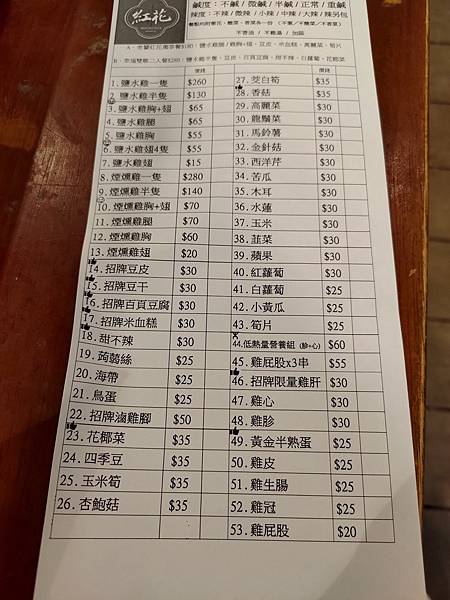 紅花
鹹度：不鹹 / 微鹹 / 半鹹 / 正常 / 重鹹
辣度：不辣 / 微辣 / 小辣 / 中辣 / 大辣 / 辣另包
不香油 / 不雞湯 / 加蒜
價錢
1. 鹽水雞一隻 $260
2. 鹽水雞半隻 $130
3. 鹽水雞胸+翅 $65
4. 鹽水雞腿 $65
5. 鹽水雞胸 $55
6. 鹽水雞翅4隻 $55
7. 鹽水雞翅 $15
8. 煙燻雞一隻 $280
9. 煙燻雞半隻 $140
10. 煙燻雞胸+翅 $70
11. 煙燻雞腿 $70
12. 煙燻雞胸 $60
13. 煙燻雞翅 $20
14. 招牌豆皮 $30
15. 招牌豆干 $30
16. 招牌百頁豆腐 $30
17. 招牌米血糕 $30
18. 甜不辣 $30
19. 蒟蒻絲 $25
20. 海帶 $25
21. 鳥蛋 $25
22. 招牌滷雞腳 $50
23. 花椰菜 $35
24. 四季豆 $35
25. 玉米筍 $35
26. 杏鮑菇 $35
價錢
27. 茭白筍 $35
28. 香菇 $35
29. 高麗菜 $30
30. 龍鬚菜 $30
31. 馬鈴薯 $30
32. 金針菇 $30
33. 西洋芹 $30
34. 苦瓜 $30
35. 木耳 $30
36. 水蓮 $30
37. 玉米 $30
38. 韭菜 $30
39. 蘋果 $30
40. 紅蘿蔔 $30
41. 白蘿蔔 $25
42. 小黃瓜 $25
43. 筍片 $25
44. 低熱量營養組 (胗+心) $60
45. 雞屁股x3串 $55
46. 招牌限量雞肝 $30
47. 雞心 $30
48. 雞胗 $30
49. 黃金半熟蛋 $25
50. 雞皮 $25
51. 雞生腸 $25
52. 雞冠 $25
53. 雞屁股 $20